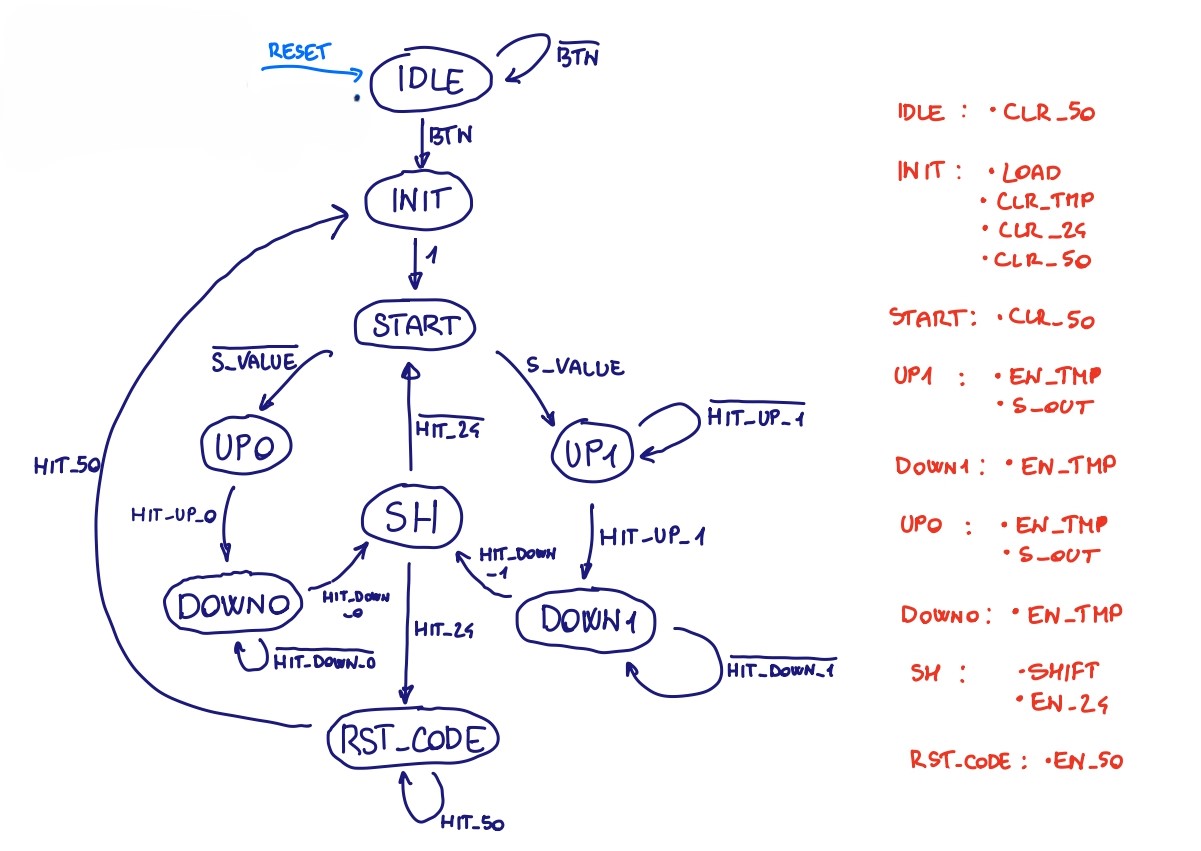 RESET
BTN
IDLE
BTN
INIT
1
START
S_VALUE
S_VALUE
HIT_24
HIT_UP_1
UP0
UP1
HIT_50
HIT_UP_0
SH
HIT_UP_1
HIT_DOWN
_1
DOWN0
HIT_DOWN
_0
DOWN1
HIT_24
HIT_DOWN_0
HIT_DOWN_1
RST_CODE
HIT_50
IDLE : • CLR_50
INIT : • LOAD
• CLR_TMP
• CLR_24
• CLR_50
START: • CLR_50
UP1 : • EN_TMP
• S_OUT
DOWN1: • EN_TMP
UP0 : • EN_TMP
• S_OUT
DOWN0: • EN_TMP
SH : • SHIFT
• EN_24
RST_CODE : • EN_50